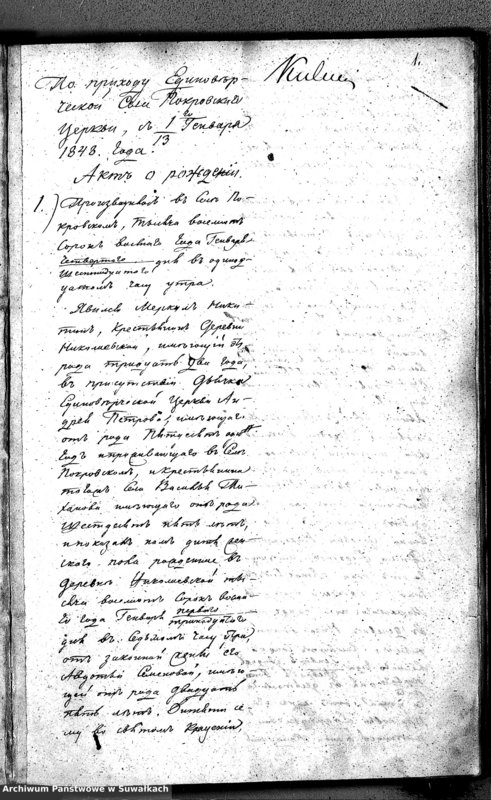 1.
По приходу Единовѣр-
ческой Села Покровскаго
Церкви, съ 1/13 Генваря
1848. Года.
Актъ о рожденiи.
1.) Произведенъ въ Селѣ По-
кровскомъ, тысяча восемьсотъ
Сорокъ восьмаго Года Генваря
четвертаго
шестнадцатаго дня въ одинад-
цатомъ часу утра.
Явился Меркулъ Ники-
тинъ, крестьянинъ Деревни
Николаевской, имѣющiй отъ
рода тридцать два года,
въ присутствiи Дьячка
Единовѣрческой Церкви Ан-
дрея Петрова, имѣющаго
отъ рода
Годъ и проживающаго въ Селѣ
Покровскомъ, и крестьянина
тогожъ Села Василья Ти-
ханова имѣющаго отъ рода
Шестдесятъ пять лѣтъ,
и показалъ намъ дитя жен-
скаго пола рожденное въ
Деревнѣ Николаевской ты-
сяча восемьсотъ Сорокъ восьма-
го года Генваря первого
тринадцатаго
дня въ Седьмомъ часу утра
отъ законной жены его
Авдотьи Семеновой, имѣю-
щей отъ рода двадцать
пять лѣтъ. Дитяти се-
му во святомъ Крещенiи,
Archiwum Państwowe w Suwałkach